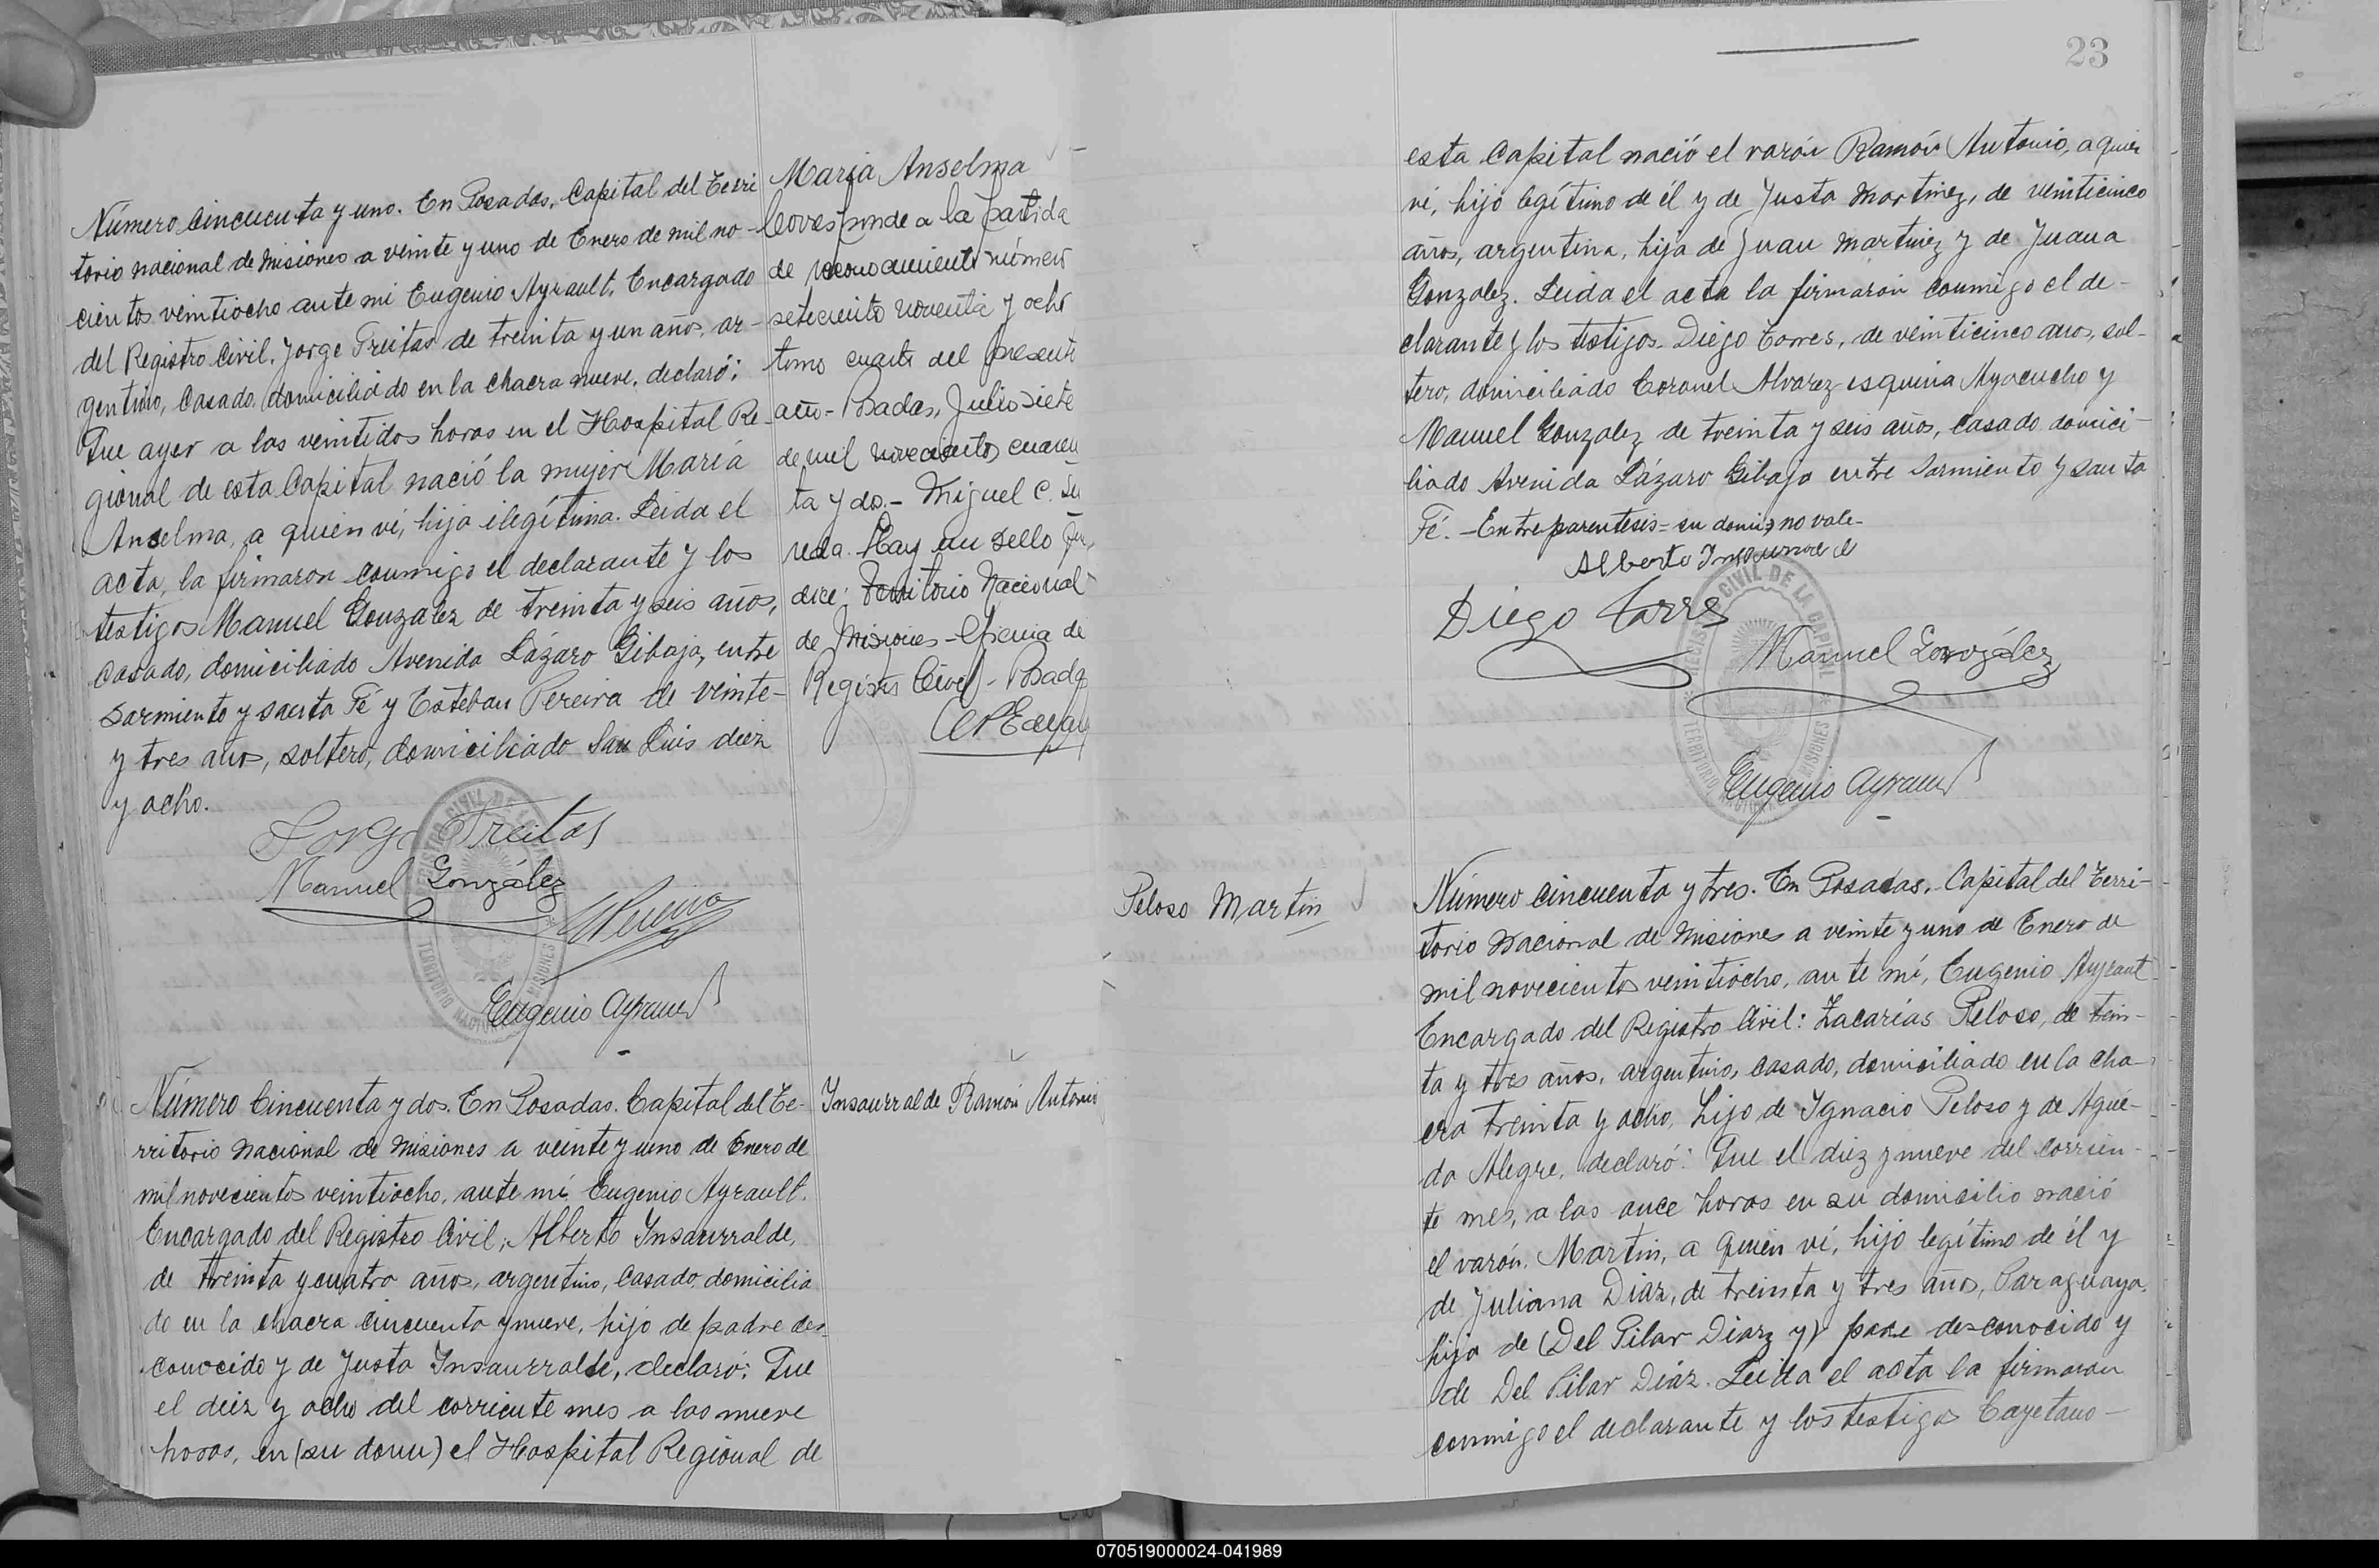 Número Cincuenta y uno. En Posadas, Capital del Terri
torio nacional de Misiones a veinte y uno de Enero de mil no-
cientos veintiocho ante mi Eugenio Ayrault, Encargado
del Registro Civil, Jorge Freitas de treinta y un años, ar-
gentino, Casado, domiciliado en la chacra nueve, declaró:
Que ayer a las veintidos horas en el Hospital Re-
gional de esta Capital nació la mujer María
Anselma, a quien ví, hija ilegítima. Leida el
acta, la firmaron conmigo el declarante y los
testigos Manuel Gonzalez de treinta y seis años,
Casado, domiciliado Avenida Lázaro Gibaja, entre
Sarmiento y Santa Fé y Esteban Pereira de veinte-
y tres años, soltero, domiciliado San Luis diez
y ocho.
Jorge Freitas
Manuel González
EPereira
Eugenio Ayrault
María Anselma
Corresponde a la partida
de reconocimiento número
setecientos noventa y ocho
tomo cuarto del presente
año.- Posadas, Julio siete
de mil novecientos cuaren
ta y dos.- Miguel C. Su
reda. Hay un sello que
dice: Territorio Nacional
de Misiones - Oficina de
Registro Civil - Posadas
Número Cincuenta y dos. En Posadas. Capital del Te-
rritorio Nacional de Misiones a veinte y uno de Enero de
mil novecientos veintiocho, ante mí Eugenio Ayrault.
Encargado del Registro Civil; Alberto Insaurralde,
de treinta y cuatro años, argentino, Casado, domicilia
do en la chacra cincuenta y nueve, hijo de padre des-
conocido y de Justa Insaurralde, declaró: Que
el diez y ocho del corriente mes a las nueve
horas, en (su domi) el Hospital Regional de
Insaurralde Ramón Antonio
23
esta Capital nació el varón Ramón Antonio, a quien
ví, hijo legítimo de él y de Justa Martinez, de veinticinco
años, argentina, hija de Juan Martinez y de Juana
Gonzalez. Leida el acta la firmaron conmigo el de-
clarante y los testigos Diego Torres, de veinticinco años, sol-
tero, domiciliado Coronel Alvarez esquina Ayacucho y
Manuel Gonzalez de treinta y seis años, Casado domici-
liado Avenida Lázaro Gibaja entre Sarmiento y Santa
Fé. - Entre parentesis = su domi, no vale-
Alberto Insaurralde
Diego Torres
Manuel González
Eugenio Ayrault
REGISTRO CIVIL DE LA CAPITAL
TERRITORIO NACIONAL MISIONES
Peloso Martin
Número Cincuenta y tres. En Posadas. Capital del Terri-
torio Nacional de Misiones a veinte y uno de Enero de
mil novecientos veintiocho, ante mí, Eugenio Ayrault
Encargado del Registro Civil: Zacarías Peloso, de trein-
ta y tres años, argentino, casado, domiciliado en la cha-
cra treinta y ocho, hijo de Ignacio Peloso y de Ague-
da Alegre, declaró: Que el diez y nueve del corrien-
te mes, a las once horas en su domicilio nació
el varón, Martin, a quien ví, hijo legítimo de él y
de Juliana Diaz, de treinta y tres años, Paraguaya,
hija de (Del Pilar Diaz y) padre desconocido y
de Del Pilar Diaz. Leida el acta la firmaron
conmigo el declarante y los testigos Cayetano-
070519000024-041989